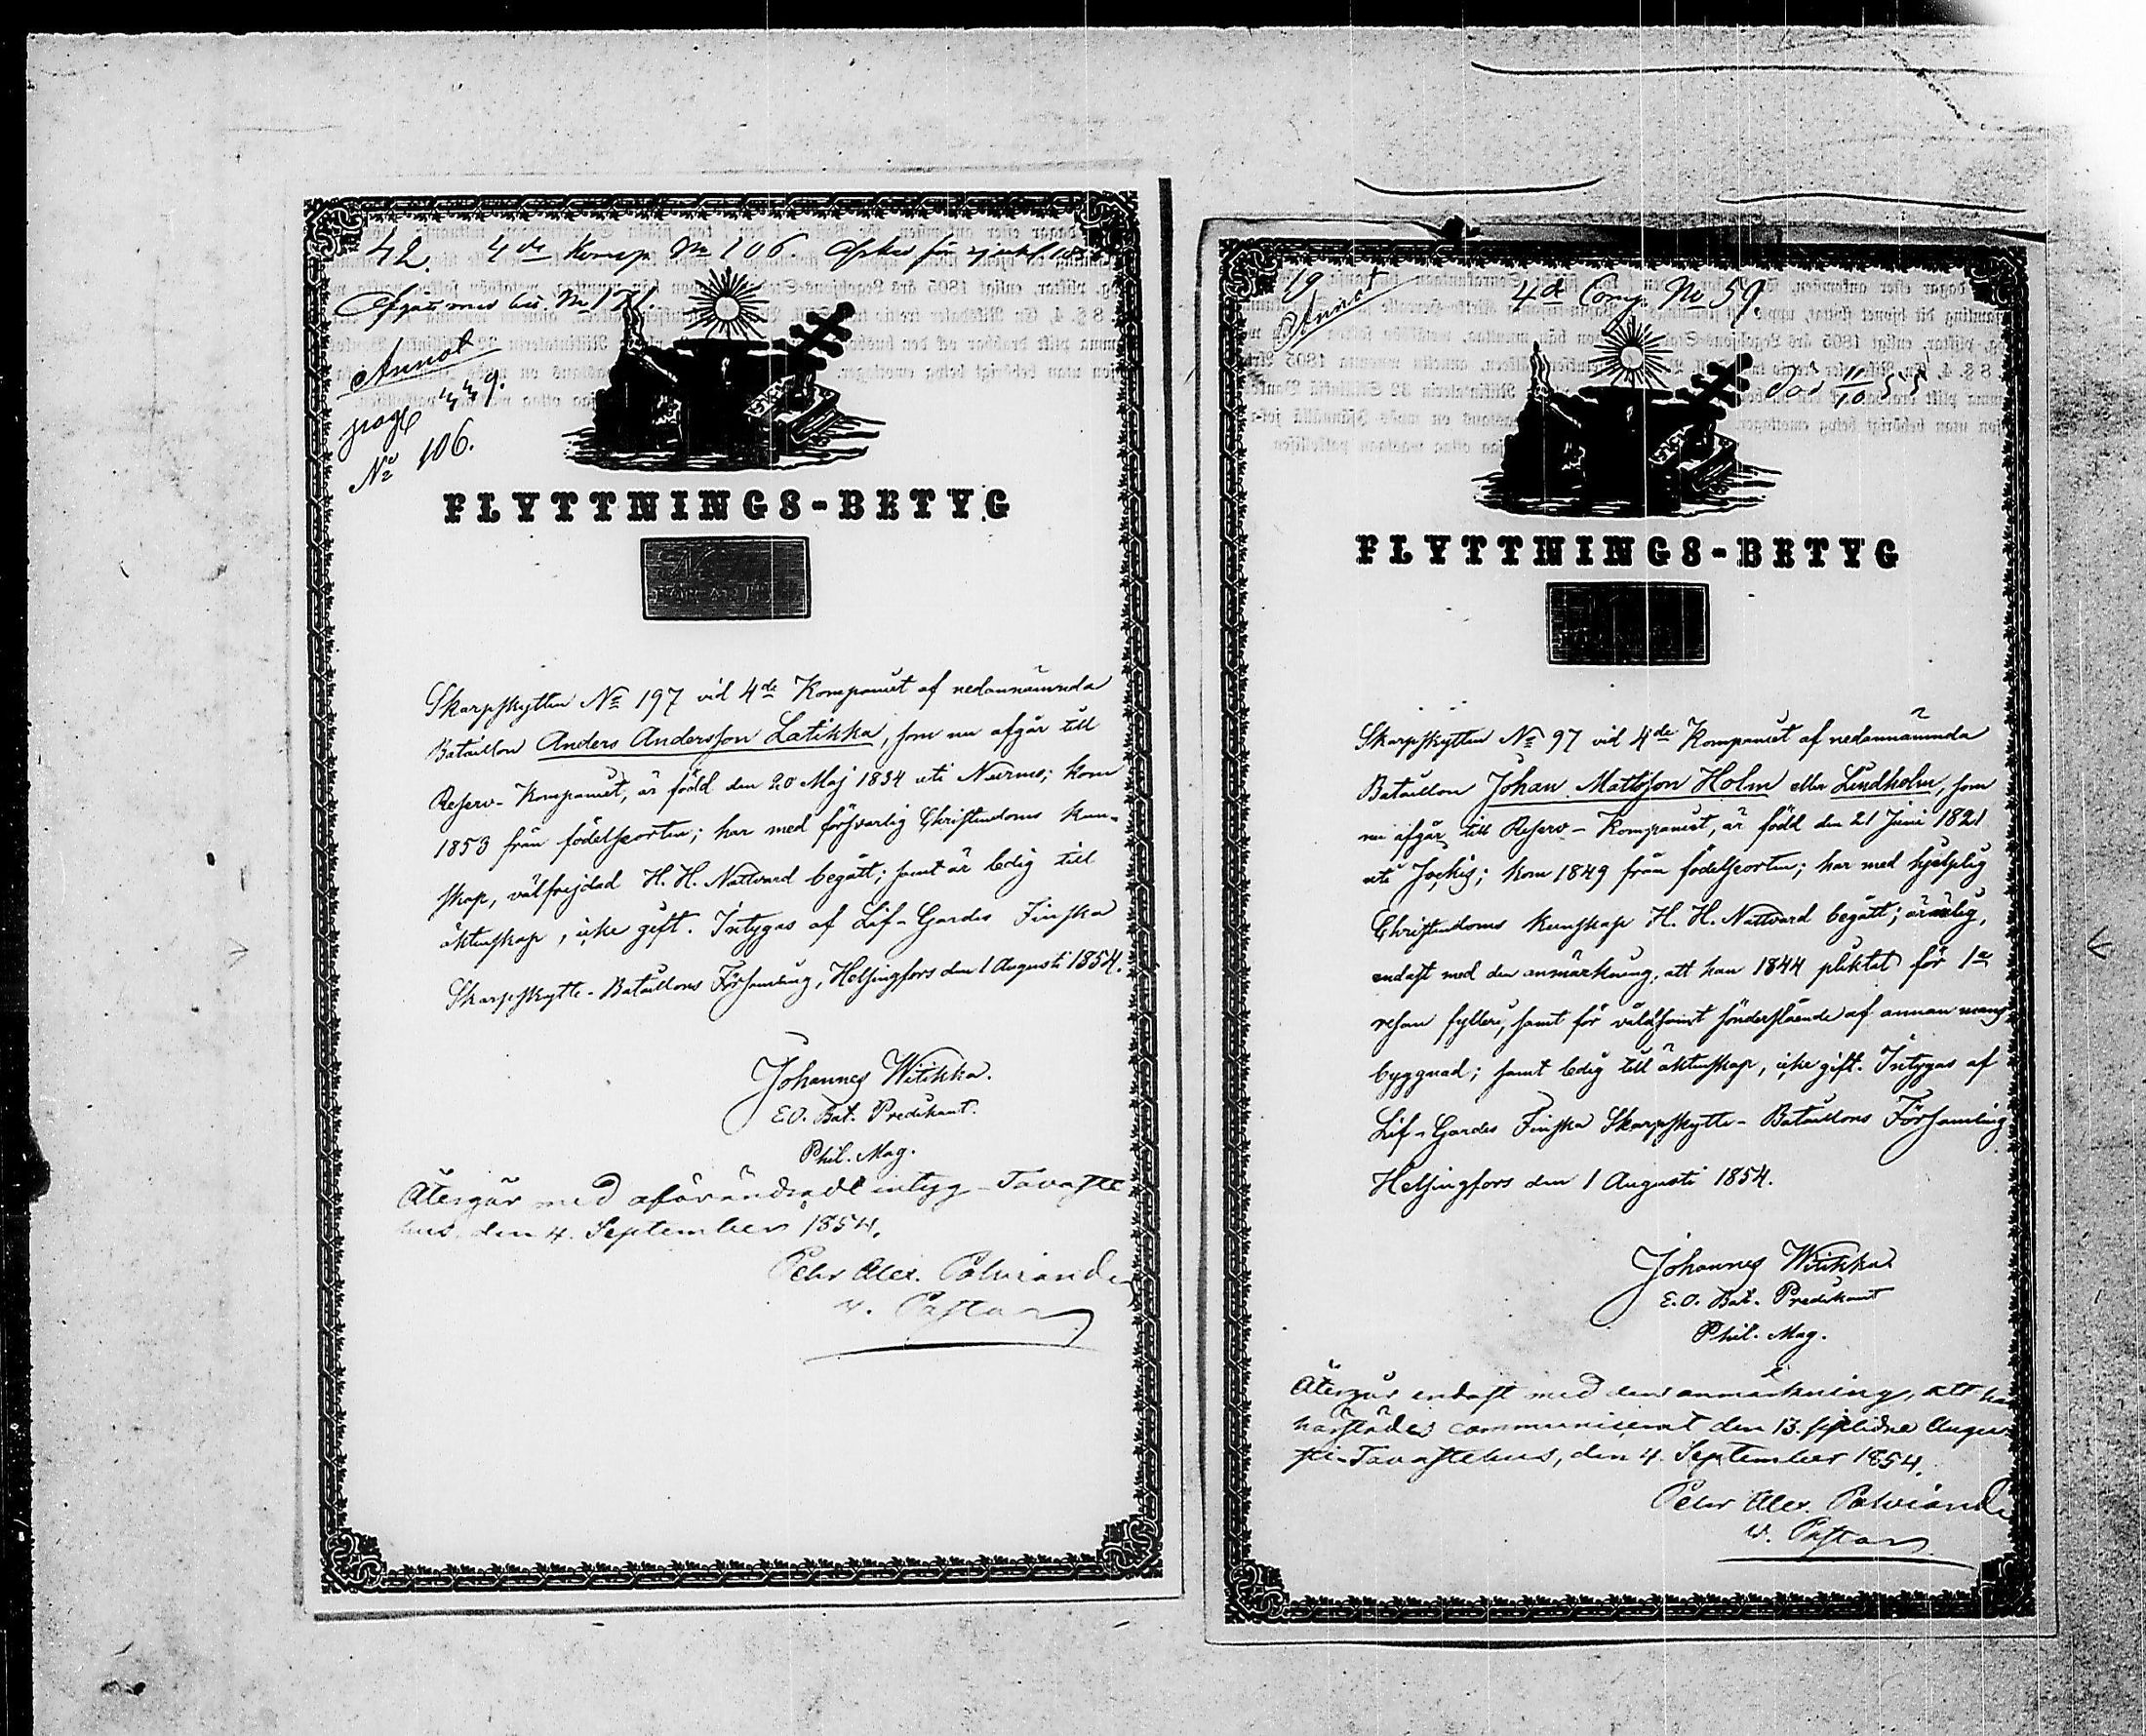 42. 4de Komp. No 106.
Annot
page 449.
No 106.
FLYTTNINGS-BETYG
Skarpskytten No 197 vid 4de Kompaniet af nedannämnda
Bataillon Anders Andersson Latikka, som nu afgår till
Reserv-Kompaniet, är född den 20 Maj 1834 uti Nurmo; kom
1853 från födelseorten; har med försvarlig Christendoms kun-
skap, välfrejdad H. H. Nattvard begått; samt är ledig till
äktenskap, icke gift. Intygas af Lif-Gardes Finska
Skarpskytte-Bataillons Församling, Helsingfors den 1 Augusti 1854.
Johannes Witikka.
E.O. Bat. Predikant.
Phil. Mag.
Återgår med oförändradt intyg - Tavaste
hus, den 4. September 1854.
Pehr Alex.
v. Pastor
19
Annot
4de Comp. No 59.
död 11/10 55
FLYTTNINGS-BETYG
Skarpskytten No 97 vid 4de Kompaniet af nedannämnda
Bataillon Johan Mattsson Holm eller Lindholm, som
nu afgår till Reserv-Kompaniet, är född den 21 Juni 1821
uti Jockis; kom 1849 från födelseorten; har med hjelplig
Christendoms kunskap H. H. Nattvard begått; är ärlig,
endast med den anmärkning, att han 1844 pliktat för 1a
resan fylleri, samt för våldsamt sönderslående af annan mans
byggnad; samt ledig till äktenskap, icke gift. Intygas af
Lif-Gardes Finska Skarpskytte-Bataillons Församling
Helsingfors den 1 Augusti 1854.
Johannes Witikka
E.O. Bat. Predikant
Phil. Mag.
Återgår endast med den anmärkning, att han
härstädes communicerat den 13. sistlidne Augu-
sti - Tavastehus, den 4. September 1854.
Pehr Alex.
v. Pastor